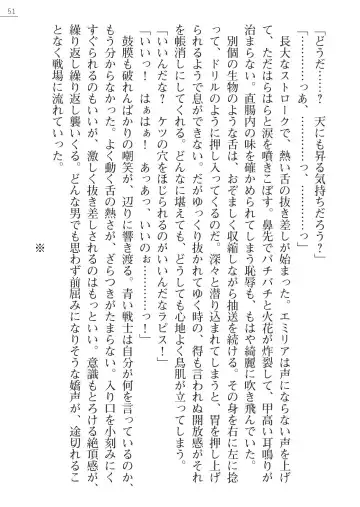 51
「どうだ……？　天にも昇る気持ちだろう？」
「……っあ、………っ！」
　長大なストロークで、熱い舌の抜き差しが始まった。エミリアは声にならない声を上げ
て、ただはらはらと涙を噴きこぼす。鼻先でパチパチと火花が炸裂して、甲高い耳鳴りが
治まらない。直腸内の味を確かめられてしまう恥辱も、もはや綺麗に吹き飛んでいた。
　別個の生物のような舌は、おぞましく収縮しながら抽送を続ける。その身を右に左に捻
って、ドリルのように押し入ってくるのだ。深々と潜り込まれてしまうと、胃を押し上げ
られるようで息ができない。だがゆっくり抜かれてゆく時の、得も言われぬ開放感が苦しみ
を帳消しにしてくれる。どんなに堪えても、どうしても心地よく鳥肌が立ってしまう。
「いいんだな？　ケツの穴をほじられるのがいいんだなラピス！」
「いいっ！　はぁはぁ！　あっあっ、いいのぉ………っ！」
　鼓膜も破れんばかりの嘲笑が、辺りに響き渡る。青い戦士は自分が何を言っているのか、
もう分からなかった。よく動く舌の熱さが、ざらつきがたまらない。入り口を小刻みにく
すぐられるのもいいが、激しく抜き差しされるのはもっといい。意識もとろける絶頂感が、
繰り返し繰り返し襲いくる。どんな男でも思わず前屈みになりそうな嬌声が、途切れるこ
となく戦場に流れていった。
※